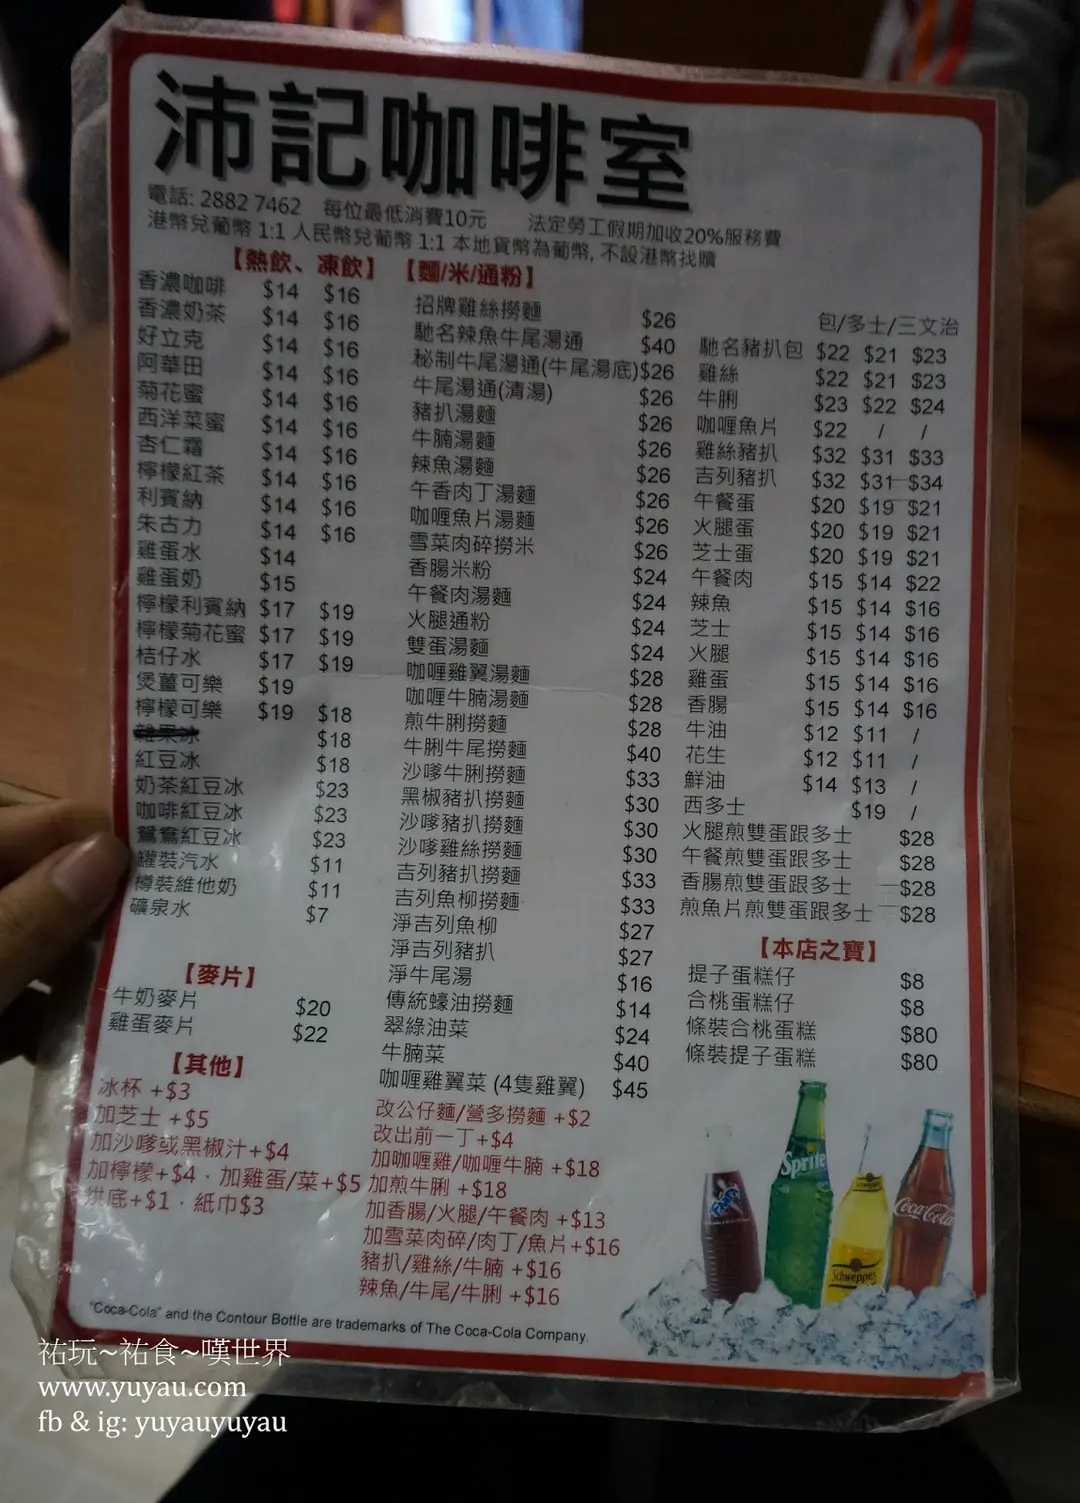 沛記咖啡室
電話: 2882 7462 每位最低消費10元 法定勞工假期加收20%服務費
港幣兌葡幣 1:1 人民幣兌葡幣 1:1 本地貨幣為葡幣, 不設港幣找贖
【熱飲、凍飲】
香濃咖啡 $14 $16
香濃奶茶 $14 $16
好立克 $14 $16
阿華田 $14 $16
菊花蜜 $14 $16
西洋菜蜜 $14 $16
杏仁霜 $14 $16
檸檬紅茶 $14 $16
利賓納 $14 $16
朱古力 $14 $16
雞蛋水 $14
雞蛋奶 $15
檸檬利賓納 $17 $19
檸檬菊花蜜 $17 $19
桔仔水 $17 $19
煲薑可樂 $19
檸檬可樂 $19 $18
雜果冰 $18
紅豆冰 $18
奶茶紅豆冰 $23
咖啡紅豆冰 $23
鴛鴦紅豆冰 $23
罐裝汽水 $11
樽裝維他奶 $11
礦泉水 $7
【麥片】
牛奶麥片 $20
雞蛋麥片 $22
【其他】
冰杯 +$3
加芝士 +$5
加沙嗲或黑椒汁+$4
加檸檬+$4．加雞蛋/菜+$5
烘底+$1．紙巾$3
【麵/米/通粉】
招牌雞絲撈麵 $26
馳名辣魚牛尾湯通 $40
秘制牛尾湯通(牛尾湯底)$26
牛尾湯通(清湯) $26
豬扒湯麵 $26
牛腩湯麵 $26
辣魚湯麵 $26
午香肉丁湯麵 $26
咖喱魚片湯麵 $26
雪菜肉碎撈米 $26
香腸米粉 $24
午餐肉湯麵 $24
火腿通粉 $24
雙蛋湯麵 $24
咖喱雞翼湯麵 $28
咖喱牛腩湯麵 $28
煎牛脷撈麵 $28
牛脷牛尾撈麵 $40
沙嗲牛脷撈麵 $33
黑椒豬扒撈麵 $30
沙嗲豬扒撈麵 $30
沙嗲雞絲撈麵 $30
吉列豬扒撈麵 $33
吉列魚柳撈麵 $33
淨吉列魚柳 $27
淨吉列豬扒 $27
淨牛尾湯 $16
傳統蠔油撈麵 $14
翠綠油菜 $24
牛腩菜 $40
咖喱雞翼菜 (4隻雞翼) $45
改公仔麵/營多撈麵 +$2
改出前一丁+$4
加咖喱雞/咖喱牛腩 +$18
加煎牛脷 +$18
加香腸/火腿/午餐肉 +$13
加雪菜肉碎/肉丁/魚片+$16
豬扒/雞絲/牛腩 +$16
辣魚/牛尾/牛脷 +$16
包/多士/三文治
馳名豬扒包 $22 $21 $23
雞絲 $22 $21 $23
牛脷 $23 $22 $24
咖喱魚片 $22 / /
雞絲豬扒 $32 $31 $33
吉列豬扒 $32 $31 $34
午餐蛋 $20 $19 $21
火腿蛋 $20 $19 $21
芝士蛋 $20 $19 $21
午餐肉 $15 $14 $22
辣魚 $15 $14 $16
芝士 $15 $14 $16
火腿 $15 $14 $16
雞蛋 $15 $14 $16
香腸 $15 $14 $16
牛油 $12 $11 /
花生 $12 $11 /
鮮油 $14 $13 /
西多士 $19 /
火腿煎雙蛋跟多士 $28
午餐煎雙蛋跟多士 $28
香腸煎雙蛋跟多士 $28
煎魚片煎雙蛋跟多士 $28
【本店之寶】
提子蛋糕仔 $8
合桃蛋糕仔 $8
條裝合桃蛋糕 $80
條裝提子蛋糕 $80
Sprite
Schweppes
Coca-Cola
"Coca-Cola" and the Contour Bottle are trademarks of The Coca-Cola Company.
祐玩~祐食~嘆世界
www.yuyau.com
fb & ig: yuyauyuyau